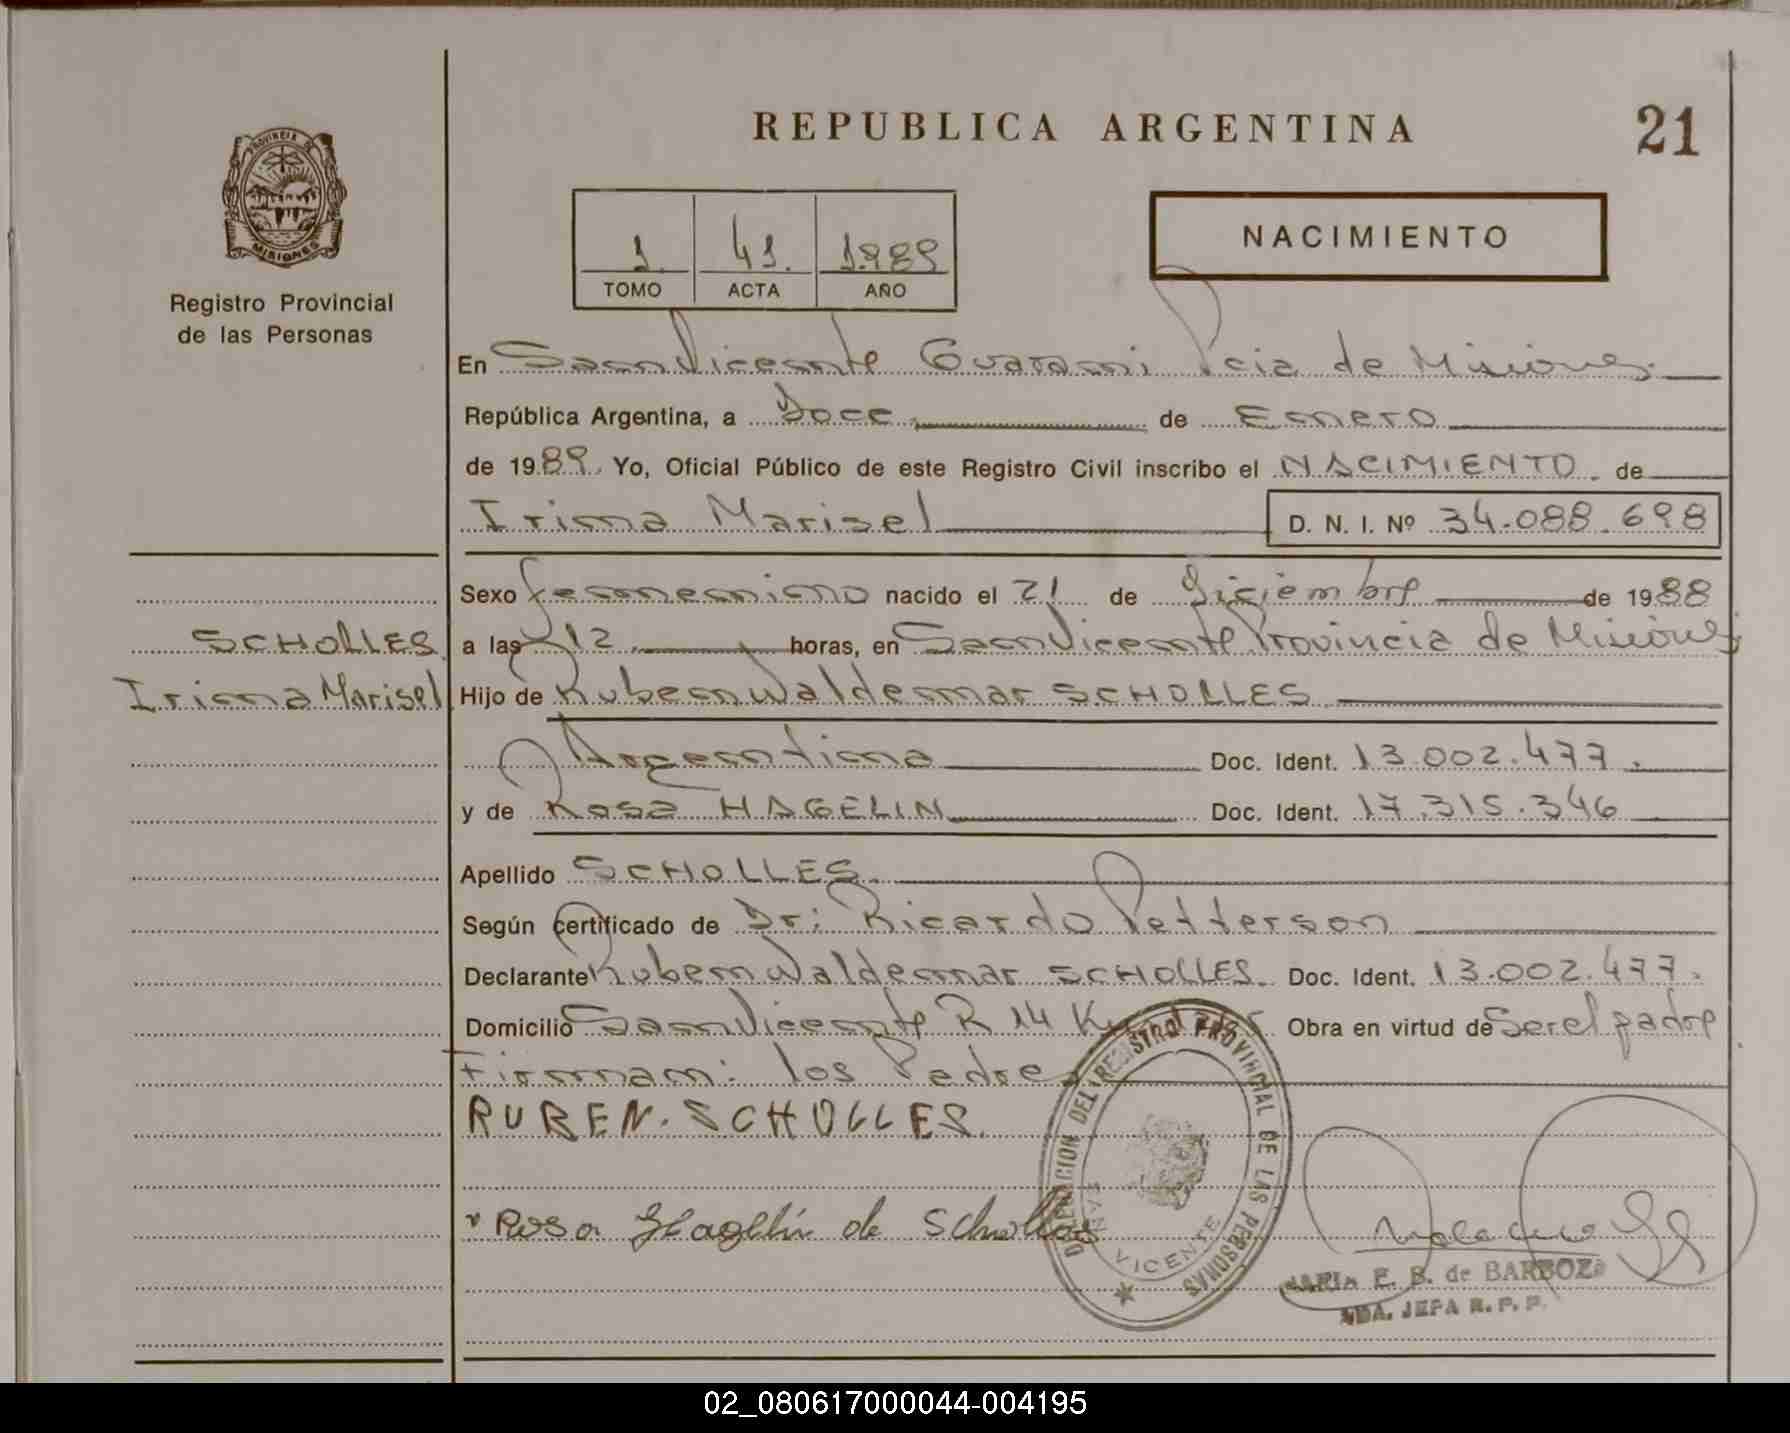 REPUBLICA ARGENTINA
21
PROVINCIA DE
MISIONES
Registro Provincial
de las Personas
1. 41. 1989
TOMO ACTA AÑO
NACIMIENTO
En San Vicente Guarani Pcia de Misiones
República Argentina, a Doce de Enero
de 1989. Yo, Oficial Público de este Registro Civil inscribo el NACIMIENTO de
Irina Marisel D. N. I. Nº 34.088.698
Sexo femenino nacido el 21 de Diciembre de 1988
SCHOLLES
a las 12 horas, en San Vicente Provincia de Misiones
Irina Marisel
Hijo de Ruben Waldemar SCHOLLES
Argentina Doc. Ident. 13.002.477.
y de Rosa HAGELIN Doc. Ident. 17.315.346
Apellido SCHOLLES
Según certificado de Dr: Ricardo Petterson
Declarante Ruben Waldemar SCHOLLES. Doc. Ident. 13.002.477.
Domicilio San Vicente R 14 Obra en virtud de Ser el padre
Firman: los Padres
RUBEN. SCHOLLES.
Rosa Hagelin de Scholles
DELEGACION DEL REGISTRO PROVINCIAL DE LAS PERSONAS
SAN VICENTE
MARIA E. B. de BARBOZA
JEFA R. P. P.
02_080617000044-004195